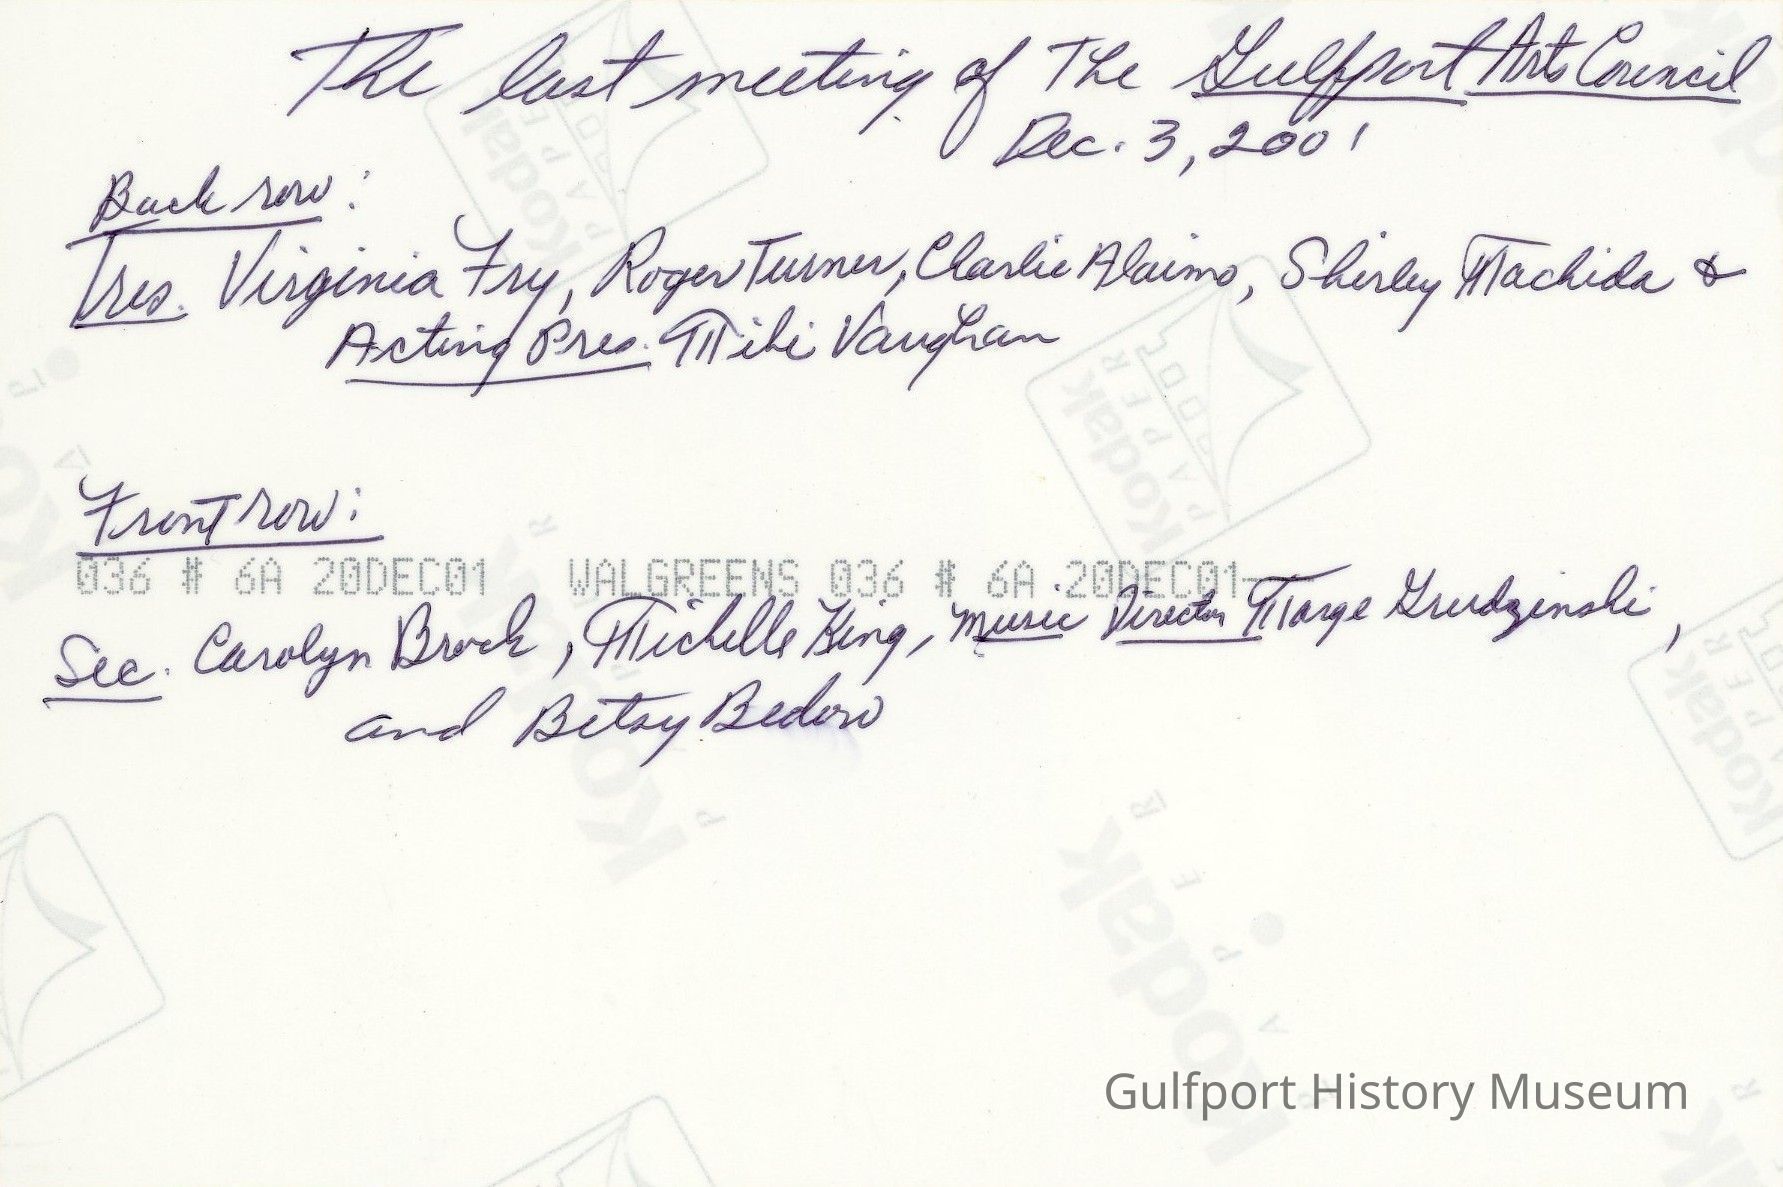 The last meeting of The Gulfport Arts Council
Dec. 3, 2001
Back row:
Tres. Virginia Fry, Roger Turner, Charlie Alaimo, Shirley Machida &
Acting Pres. Miki Vaughan
Front row:
036 # 6A 20DEC01 WALGREENS 036 # 6A 20DEC01
Sec. Carolyn Brock, Michelle King, Music Director Marge Grudzinski,
and Betsy Bedow
Kodak
PAPER
Gulfport History Museum